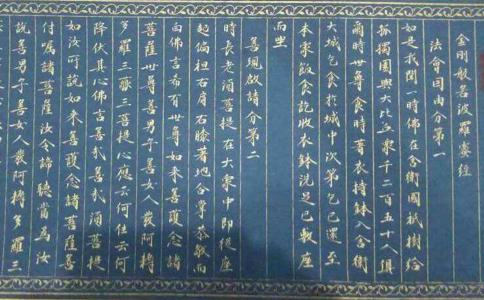 金剛般若波羅蜜經
法會因由分第一
如是我聞一時佛在舍衛國祇樹給
孤獨園與大比丘眾千二百五十人俱
爾時世尊食時著衣持鉢入舍衛
大城乞食於城中次第乞已還至
本家飯食訖收衣鉢洗足已敷座
而坐
善現啟請分第二
時長老湏菩提在大眾中即從座
起偏袒右肩右膝著地合掌恭敬而
白佛言希有世尊如來善護念諸
菩薩世尊善男子善女人發阿耨
多羅三藐三菩提心應云何住云何
降伏其心佛言善哉善哉湏菩提
如汝所說如来善護念諸菩薩善
付屬諸菩薩汝今諦聽當為汝
說善男子善女人發阿耨多羅三